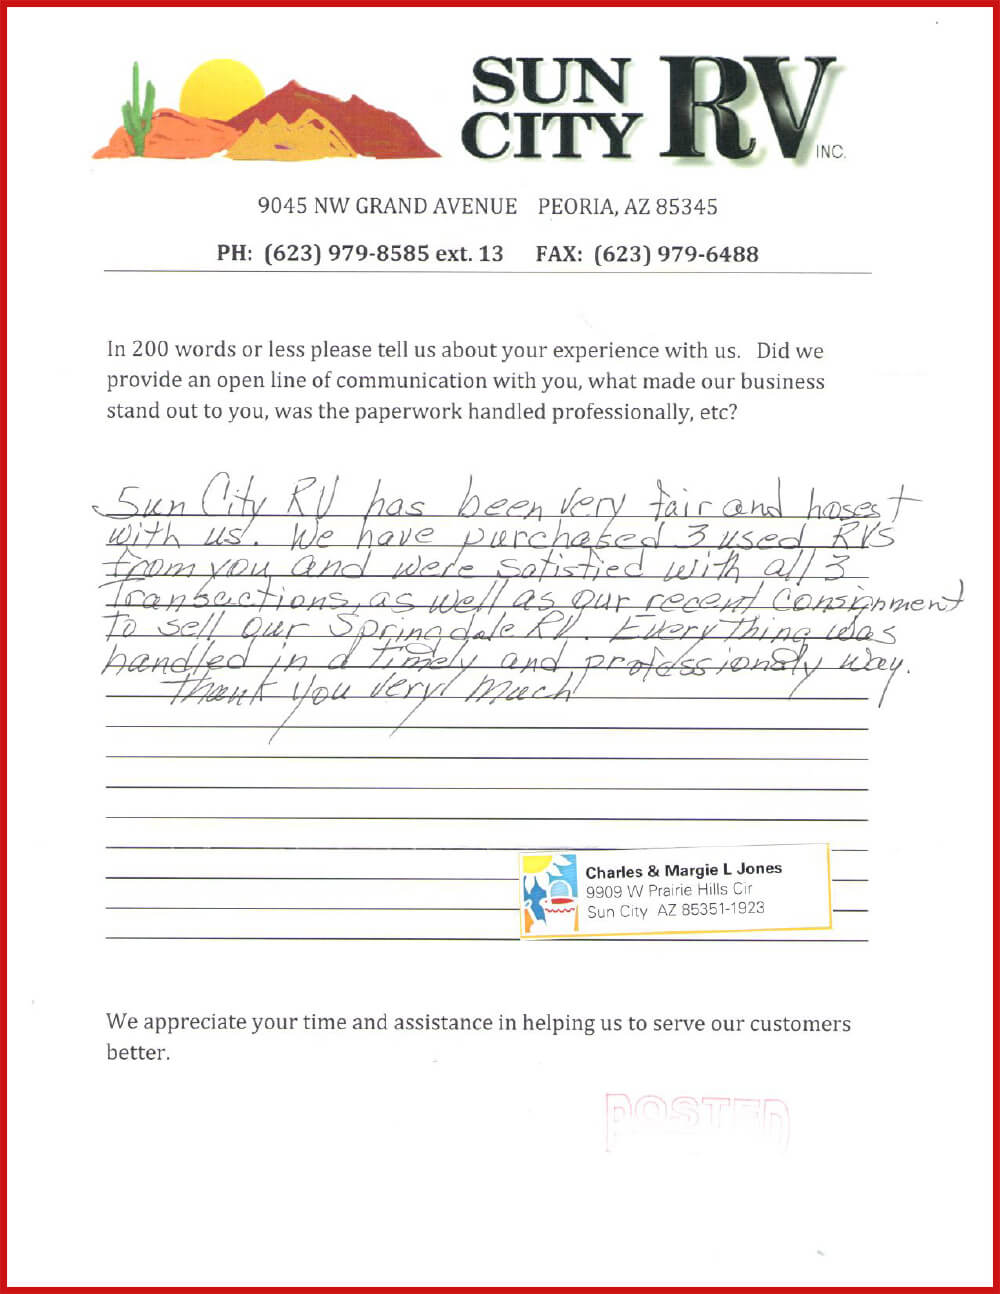 SUN
CITY RV INC.
9045 NW GRAND AVENUE PEORIA, AZ 85345
PH: (623) 979-8585 ext. 13 FAX: (623) 979-6488
In 200 words or less please tell us about your experience with us. Did we
provide an open line of communication with you, what made our business
stand out to you, was the paperwork handled professionally, etc?
Sun City RV has been very fair and hosest
with us. We have purchased 3 used RVs
from you and were satisfied with all 3
Transactions, as well as our recent Consignment
To sell our Springdale RV. Everything was
handled in a timely and professionaly way.
Thank you very much
Charles & Margie L Jones
9909 W Prairie Hills Cir
Sun City AZ 85351-1923
We appreciate your time and assistance in helping us to serve our customers
better.
POSTED